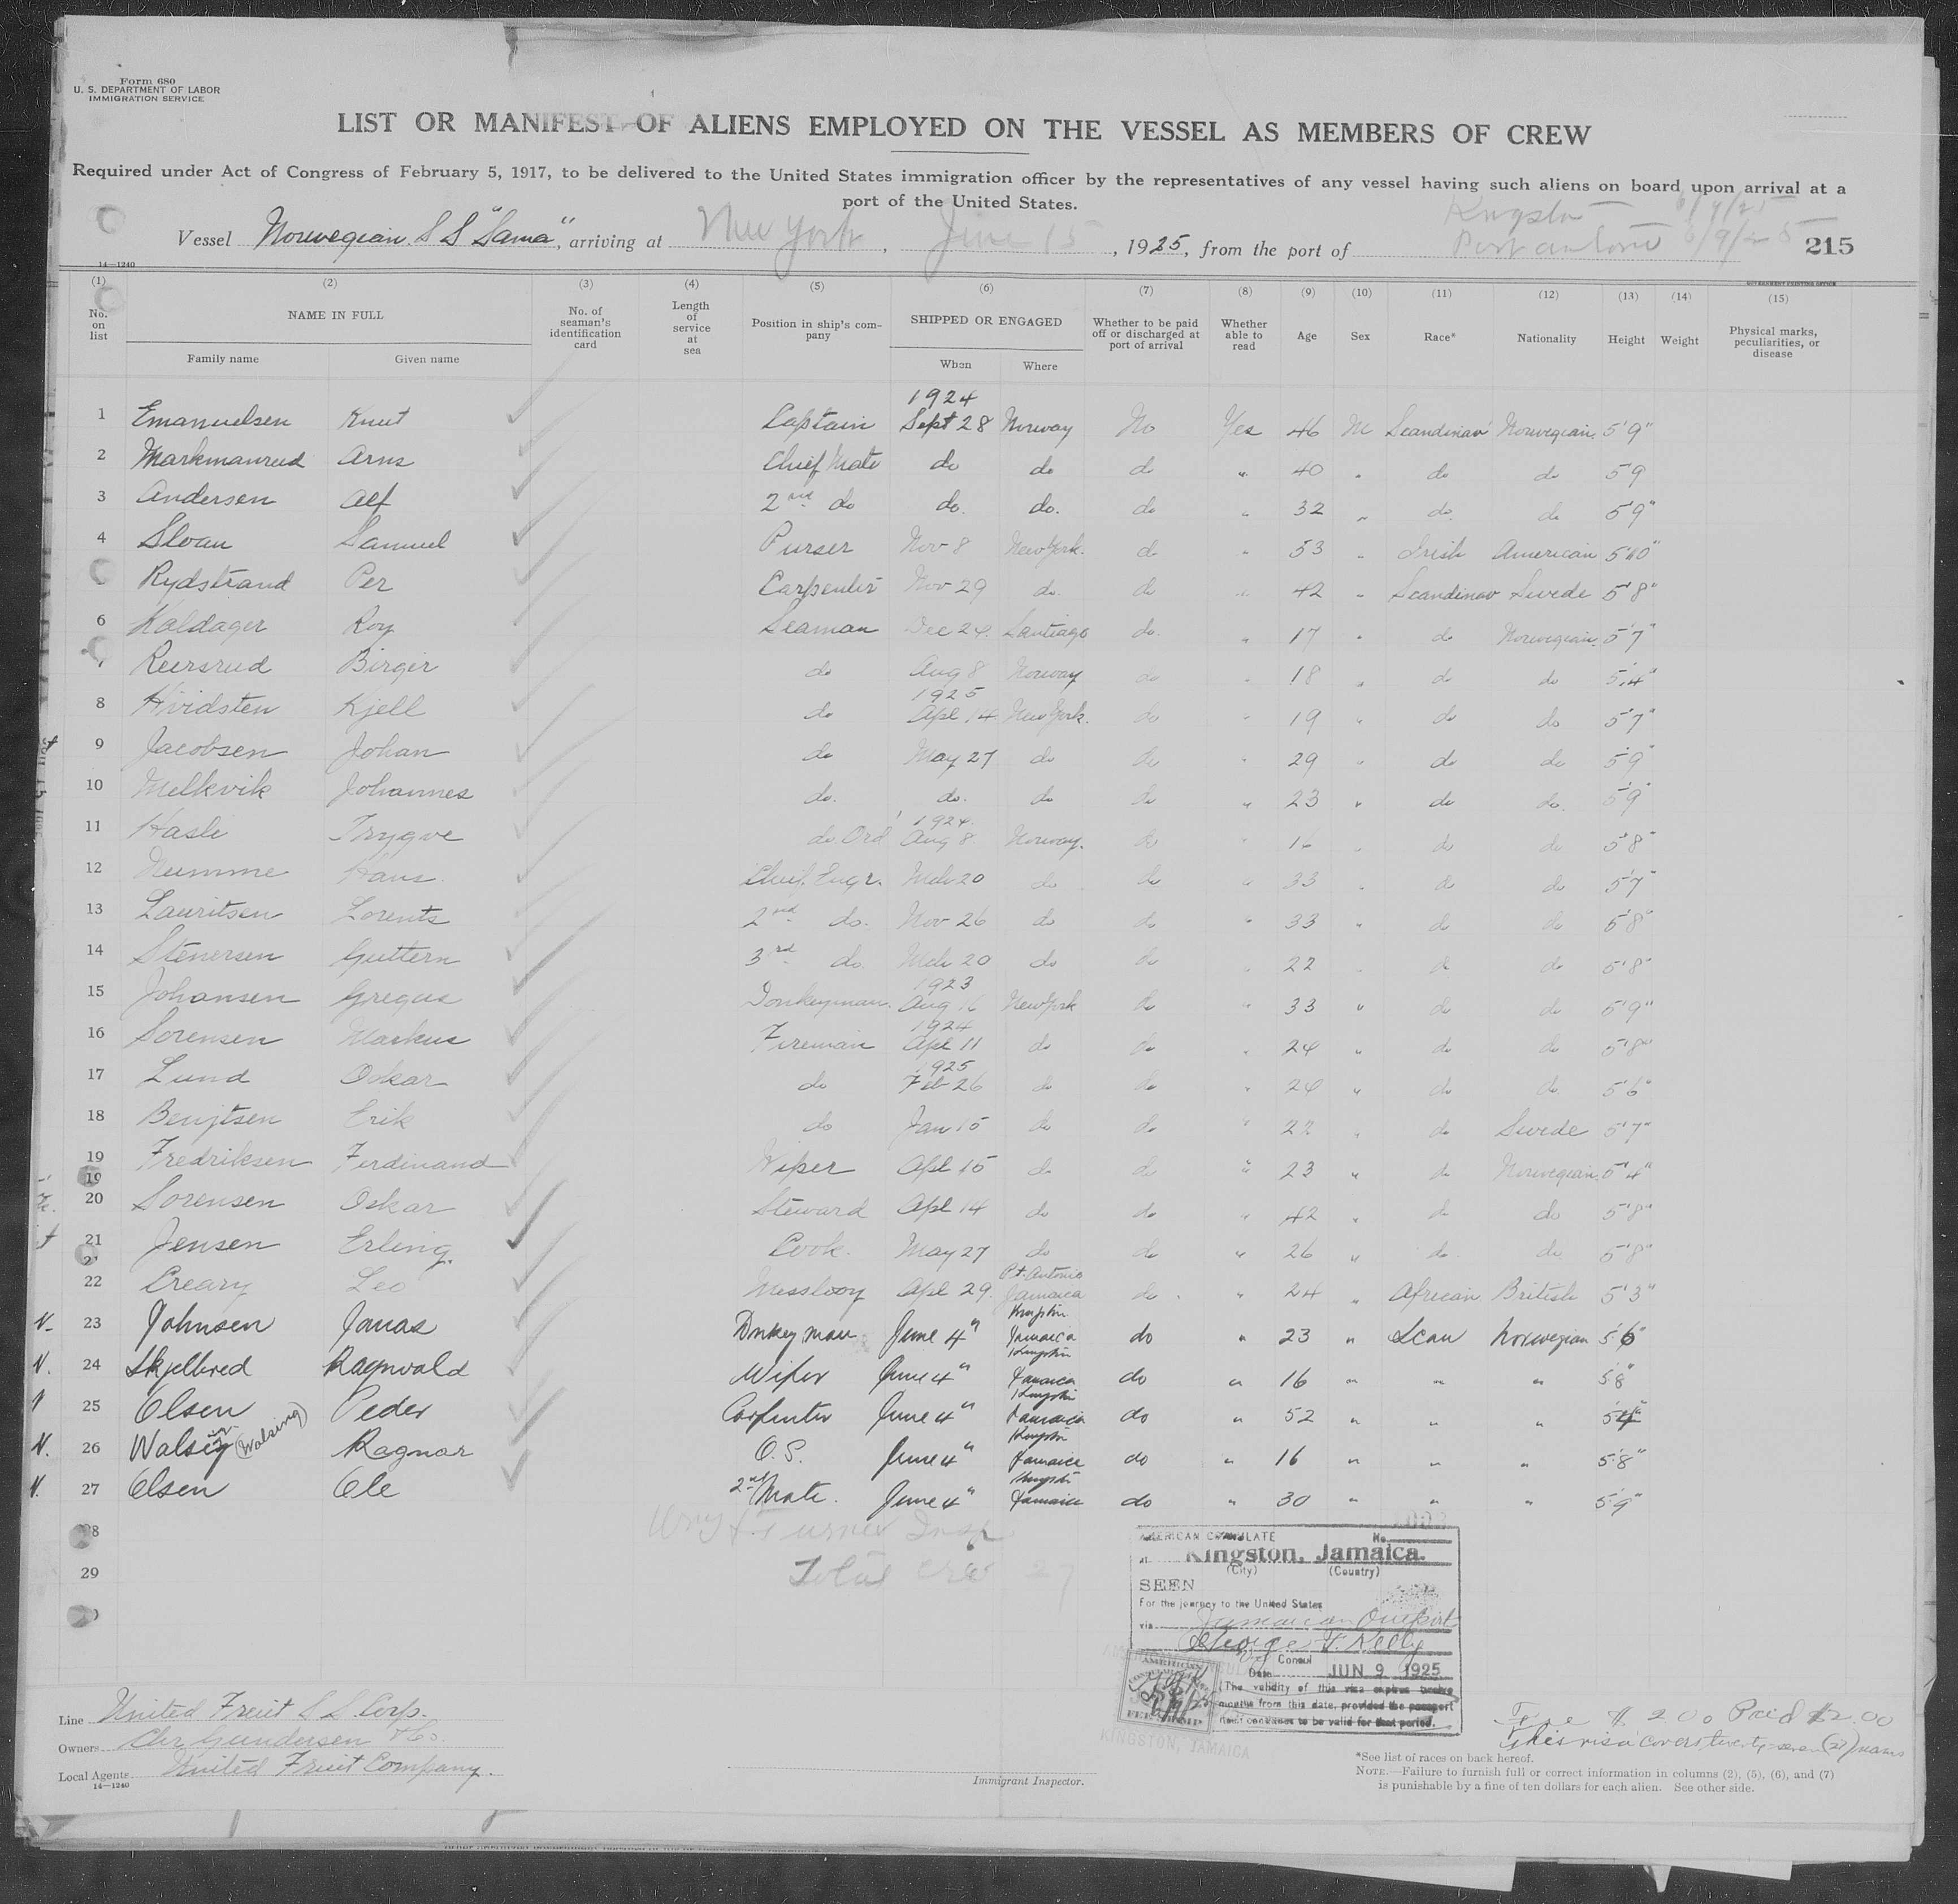 Form 680
U. S. DEPARTMENT OF LABOR
IMMIGRATION SERVICE
LIST OR MANIFEST OF ALIENS EMPLOYED ON THE VESSEL AS MEMBERS OF CREW
Required under Act of Congress of February 5, 1917, to be delivered to the United States immigration officer by the representatives of any vessel having such aliens on board upon arrival at a
port of the United States.
Kingston 6/9/25
Vessel Norwegian S S "Sama", arriving at New York, June 15, 1925, from the port of Port Antonio 6/9/25 215
14—1240
GOVERNMENT PRINTING OFFICE
(1) (2) (3) (4) (5) (6) (7) (8) (9) (10) (11) (12) (13) (14) (15)
No. on list NAME IN FULL Family name Given name No. of seaman's identification card Length of service at sea Position in ship's company SHIPPED OR ENGAGED When Where Whether to be paid off or discharged at port of arrival Whether able to read Age Sex Race* Nationality Height Weight Physical marks, peculiarities, or disease
1924
1 Emanuelsen Knut Captain Sept 28 Norway No Yes 46 M Scandinav Norwegian 5'9"
2 Markmanrud Arns Chief Mate do do do " 40 " do do 5 9
3 Andersen Alf 2nd do do. do. do " 32 " do. do 5'9"
4 Sloan Samuel Purser Nov 8 New York. do " 53 " Irish American 5'10"
Rydstrand Per Carpenter Nov 29 do. do " 42 " Scandinav Swede 5'8"
6 Koldager Roy Seaman Dec 24. Santiago do. " 17 " do Norwegian. 5'7"
7 Reersrud Birger do Aug 8 Norway do " 18 " do do 5'4"
1925
8 Hvidsten Kjell do Apl 14 New York. do " 19 " do do 5'7"
9 Jacobsen Johan do May 27 do do " 29 " do do 5'9"
10 Melkvik Johannes do. do. do do " 23 " do do. 5'9"
1924
11 Hasle Trygve do Ord Aug 8 Norway. do " 16 " do do 5'8"
12 Numme Hans Chief Engr. Mch 20 do do " 33 " do do 5'7"
13 Lauritsen Lorents 2nd do. Nov 26 do do " 33 " do do 5'8"
14 Stenersen Guttern 3rd do Mch 20 do do " 22 " do do 5'8"
1923
15 Johansen Gregus Donkeyman. Aug 16 New York do " 33 " do do 5'9"
1924
16 Sorensen Markus Fireman Apl 11 do do " 24 " do do 5'8"
1925
17 Lund Oskar do Feb 26 do do " 24 " do do. 5'6"
18 Benjtsen Erik do Jan 15 do do " 22 " do Swede 5'7"
19 Fredriksen Ferdinand Wiper Apl 15 do do " 23 " do Norwegian 5'4"
20 Sorensen Oskar Steward Apl 14 do do " 42 " do do 5'8"
21 Jensen Erling. Cook. May 27 do do " 26 " do. do. 5'8"
22 Creary Leo Messboy Apl 29. Pt. Antonio Jamaica do. " 24 " African British 5'3"
N- 23 Johnsen Jonas Donkeyman June 4" Kingston Jamaica do " 23 " Scan Norwegian 5'6"
N. 24 Skjelbred Ragnvald Wiper June 4" Kingston Jamaica do " 16 " " " 5'8"
25 Olsen Peder Carpenter June 4" Kingston Jamaica do " 52 " " " 5'4"
N. 26 Walsig (Walsing) Ragnar O.S. June 4" Kingston Jamaica do " 16 " " " 5'8"
N. 27 Olsen Ole 2nd Mate. June 4" Kingston Jamaica do " 30 " " " 5'9"
Turner Insp
29 Total Crew 27
AMERICAN CONSULATE No.
at Kingston, Jamaica.
(City) (Country)
SEEN
For the journey to the United States
via Jamaican Outport
George F. Kelly
Consul
Date JUN 9 1925
(The validity of this visa expires twelve
months from this date, provided the passport
continues to be valid for that period.
AMERICAN
FEE STAMP
KINGSTON, JAMAICA
Line United Fruit S S Corp.
Owners Chr Gundersen & Co.
Local Agents United Fruit Company.
14—1240
Immigrant Inspector.
Fee $ 2.00 Paid $2.00
This visa covers twenty-seven (27) names
*See list of races on back hereof.
NOTE.—Failure to furnish full or correct information in columns (2), (5), (6), and (7)
is punishable by a fine of ten dollars for each alien. See other side.